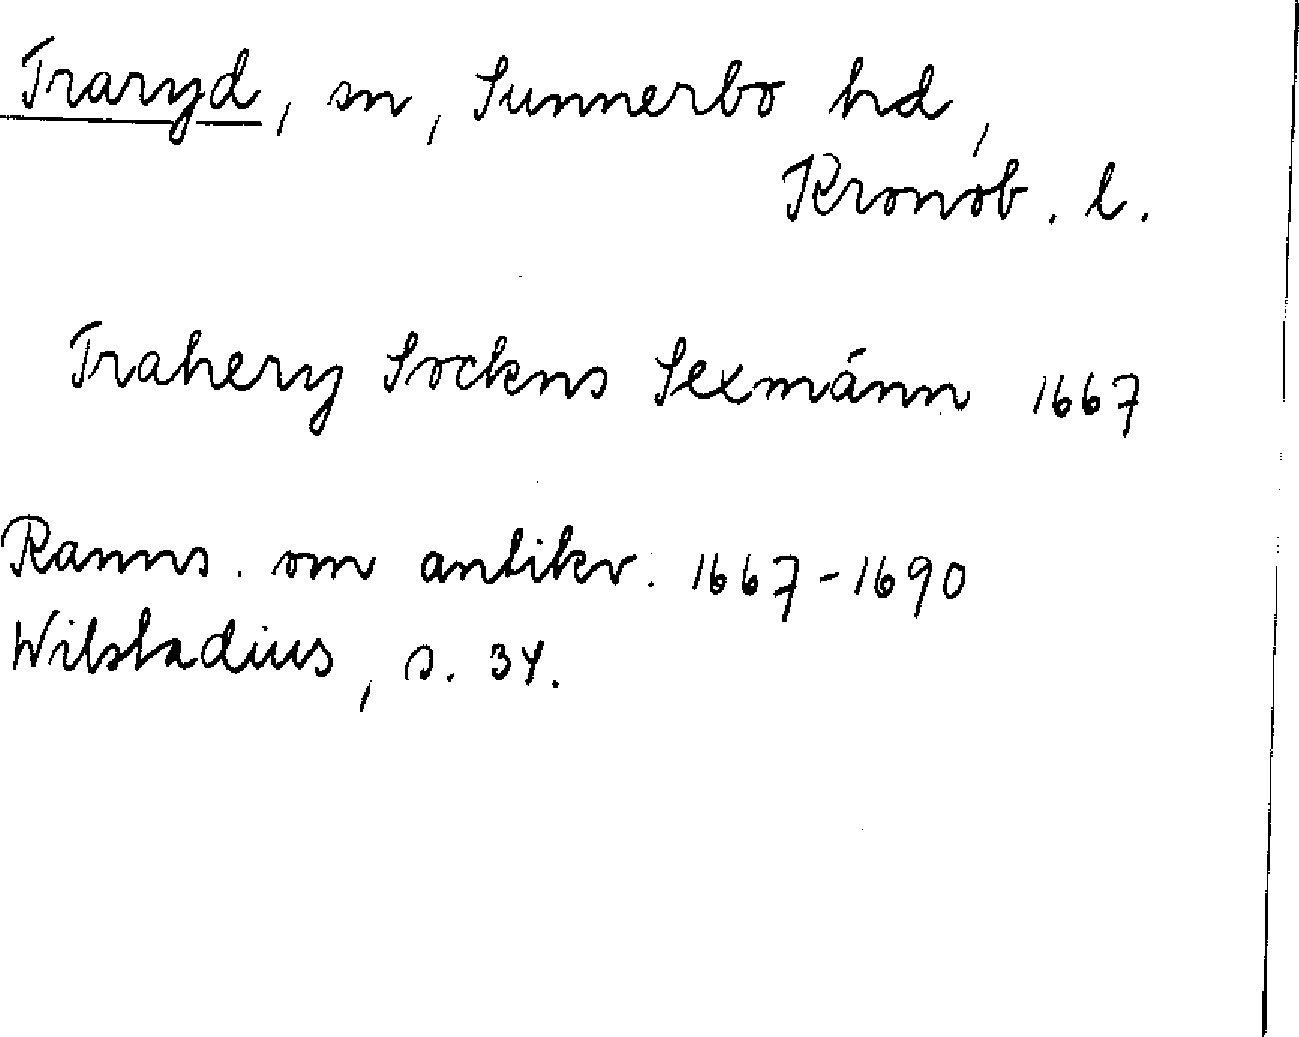 Traryd, sn, Sunnerbo hd,
Kronob. l.
Trahery Sockns Sexmánn 1667
Ranns. om antikv. 1667-1690
Wilstadius, s. 34.